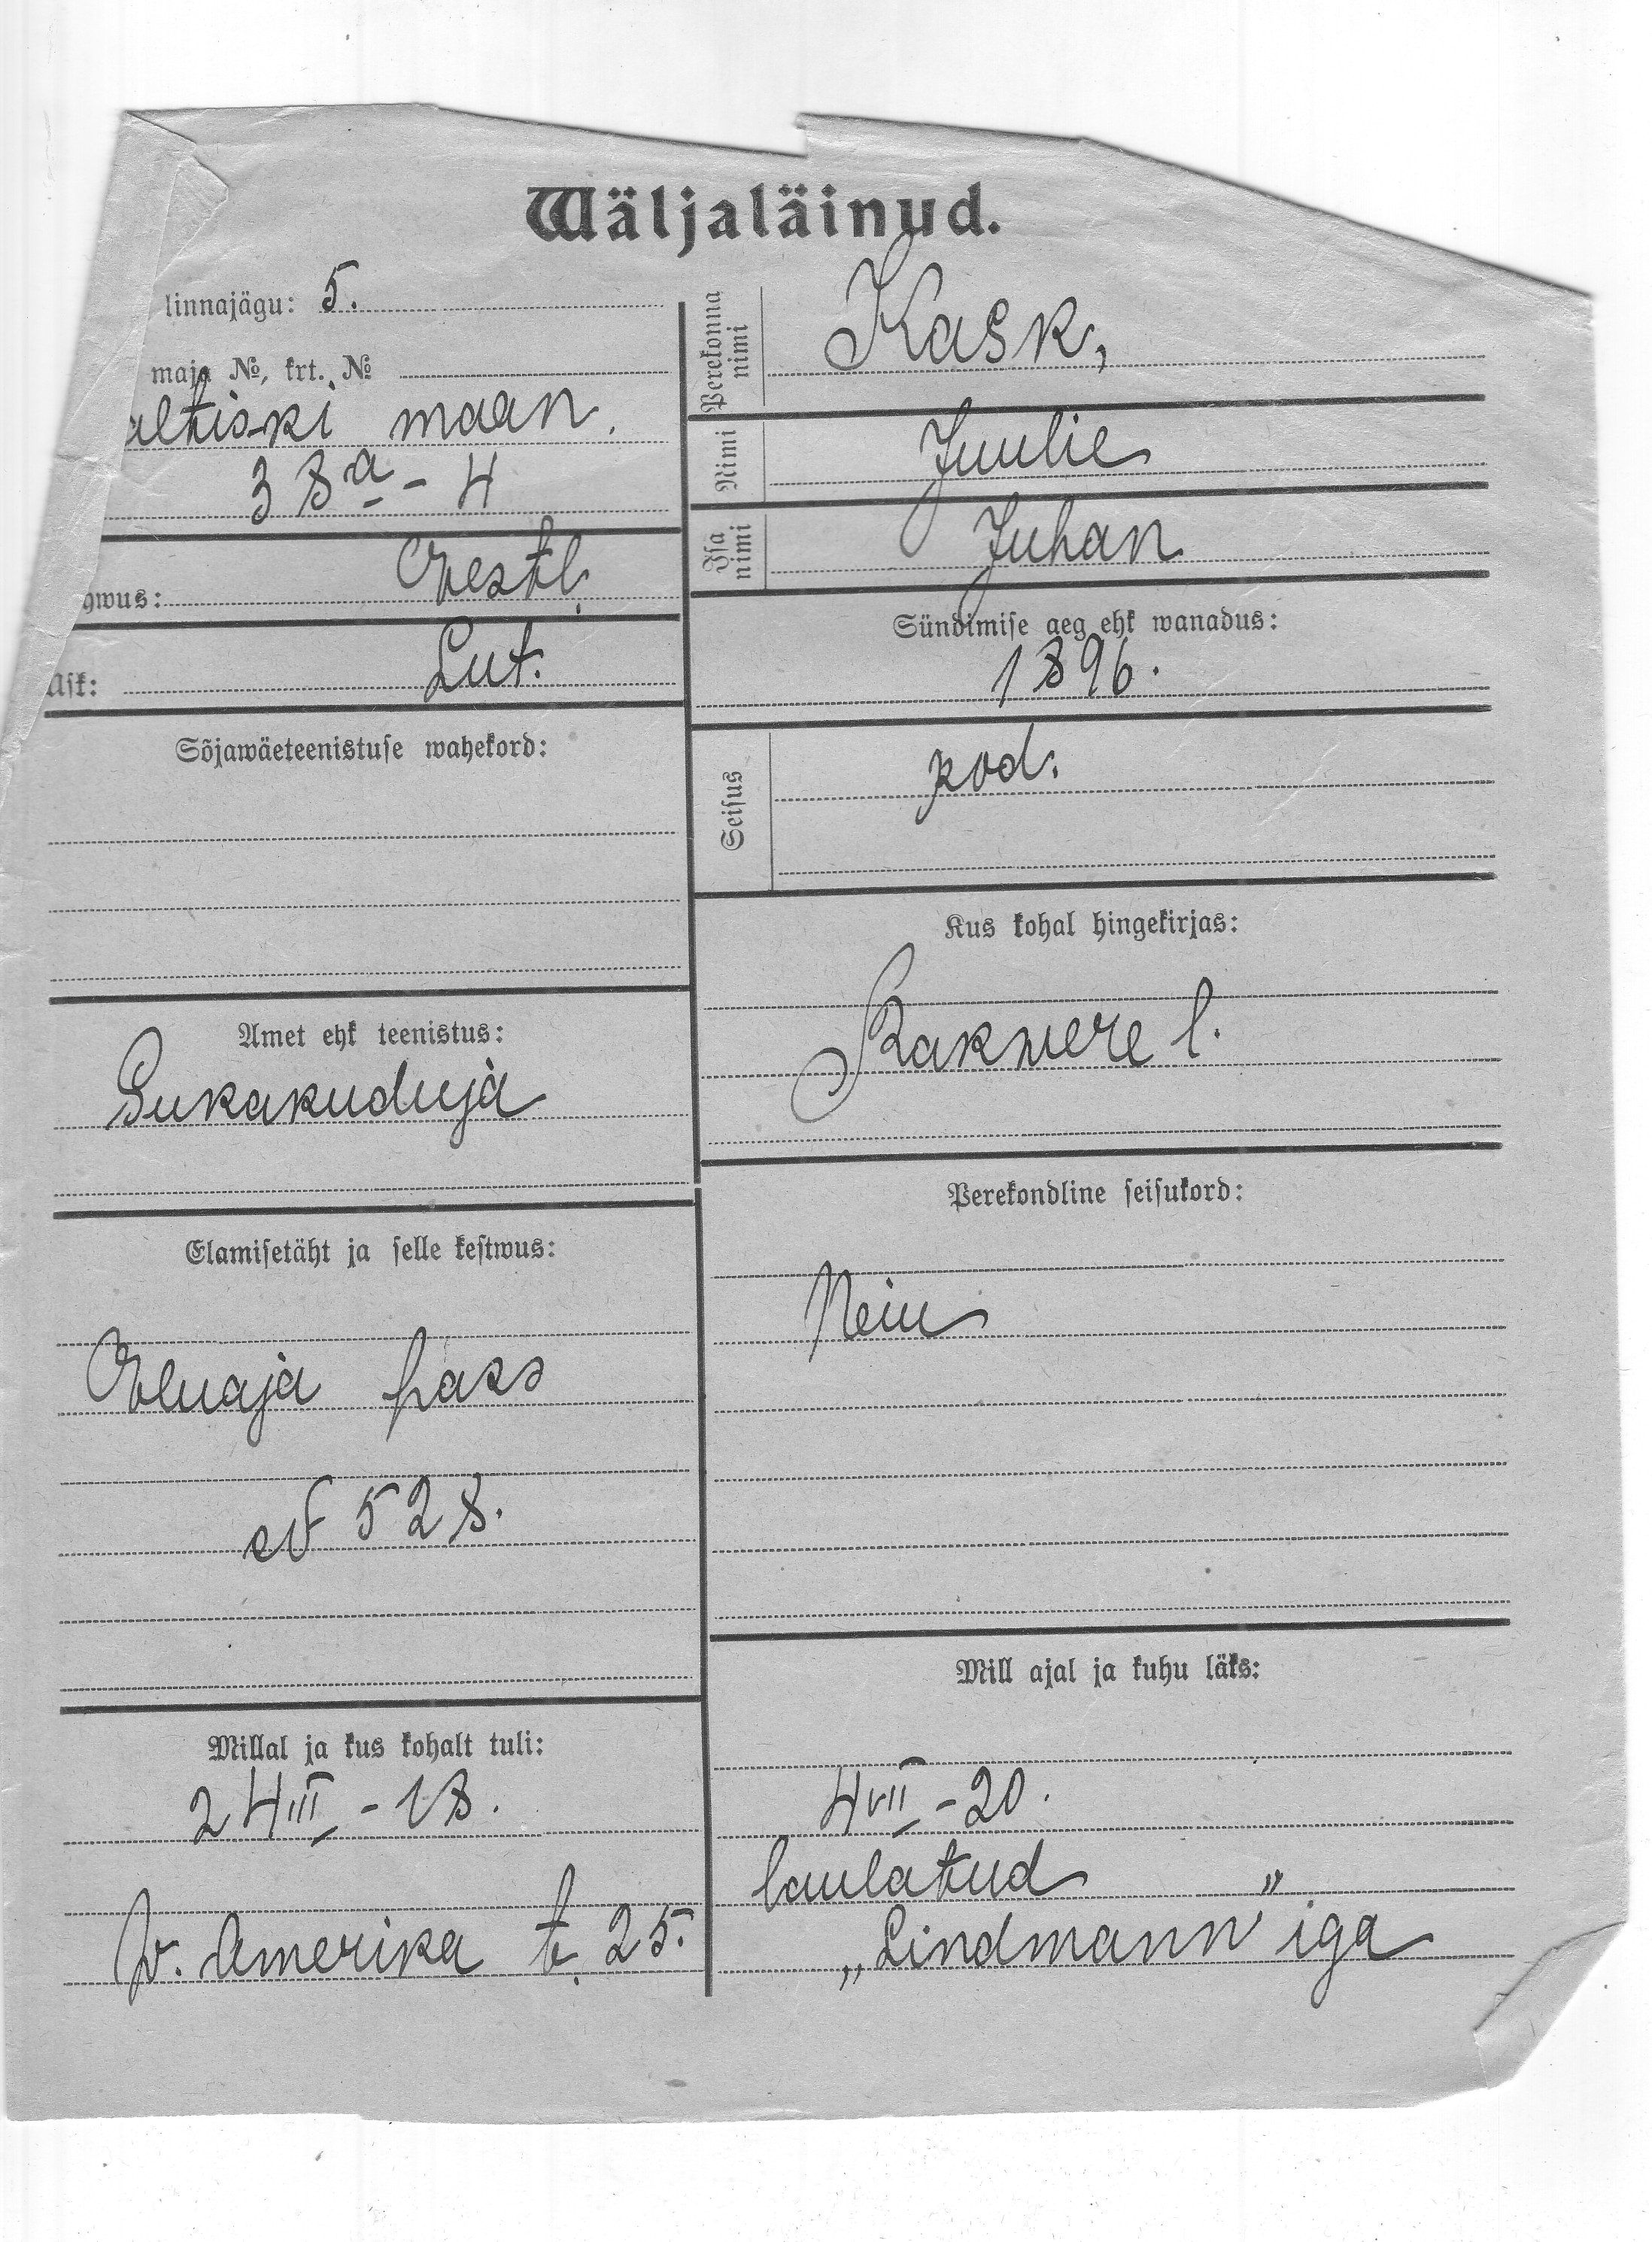 Wäljaläinud.
linnajägu: 5.
maja №, krt. №
altiski maan.
38a - 4
hwus: Eestl.
Ask: Lut.
Sõjawäeteenistuse wahekord:
Amet ehk teenistus:
Sukakuduja
Elamisetäht ja selle kestwus:
Eluaja pass
№ 528.
Millal ja kus kohalt tuli:
24 III - 18.
W. Amerika t. 25.
Perekonna nimi
Kask,
Nimi
Juulie
Isa nimi
Juhan
Sündimise aeg ehk wanadus:
1896.
Seisus
kod.
Kus kohal hingekirjas:
Rakwere l.
Perekondline seisukord:
Neiu
Mill ajal ja kuhu läks:
4 VII - 20.
laulatud "
„Lindmann" iga